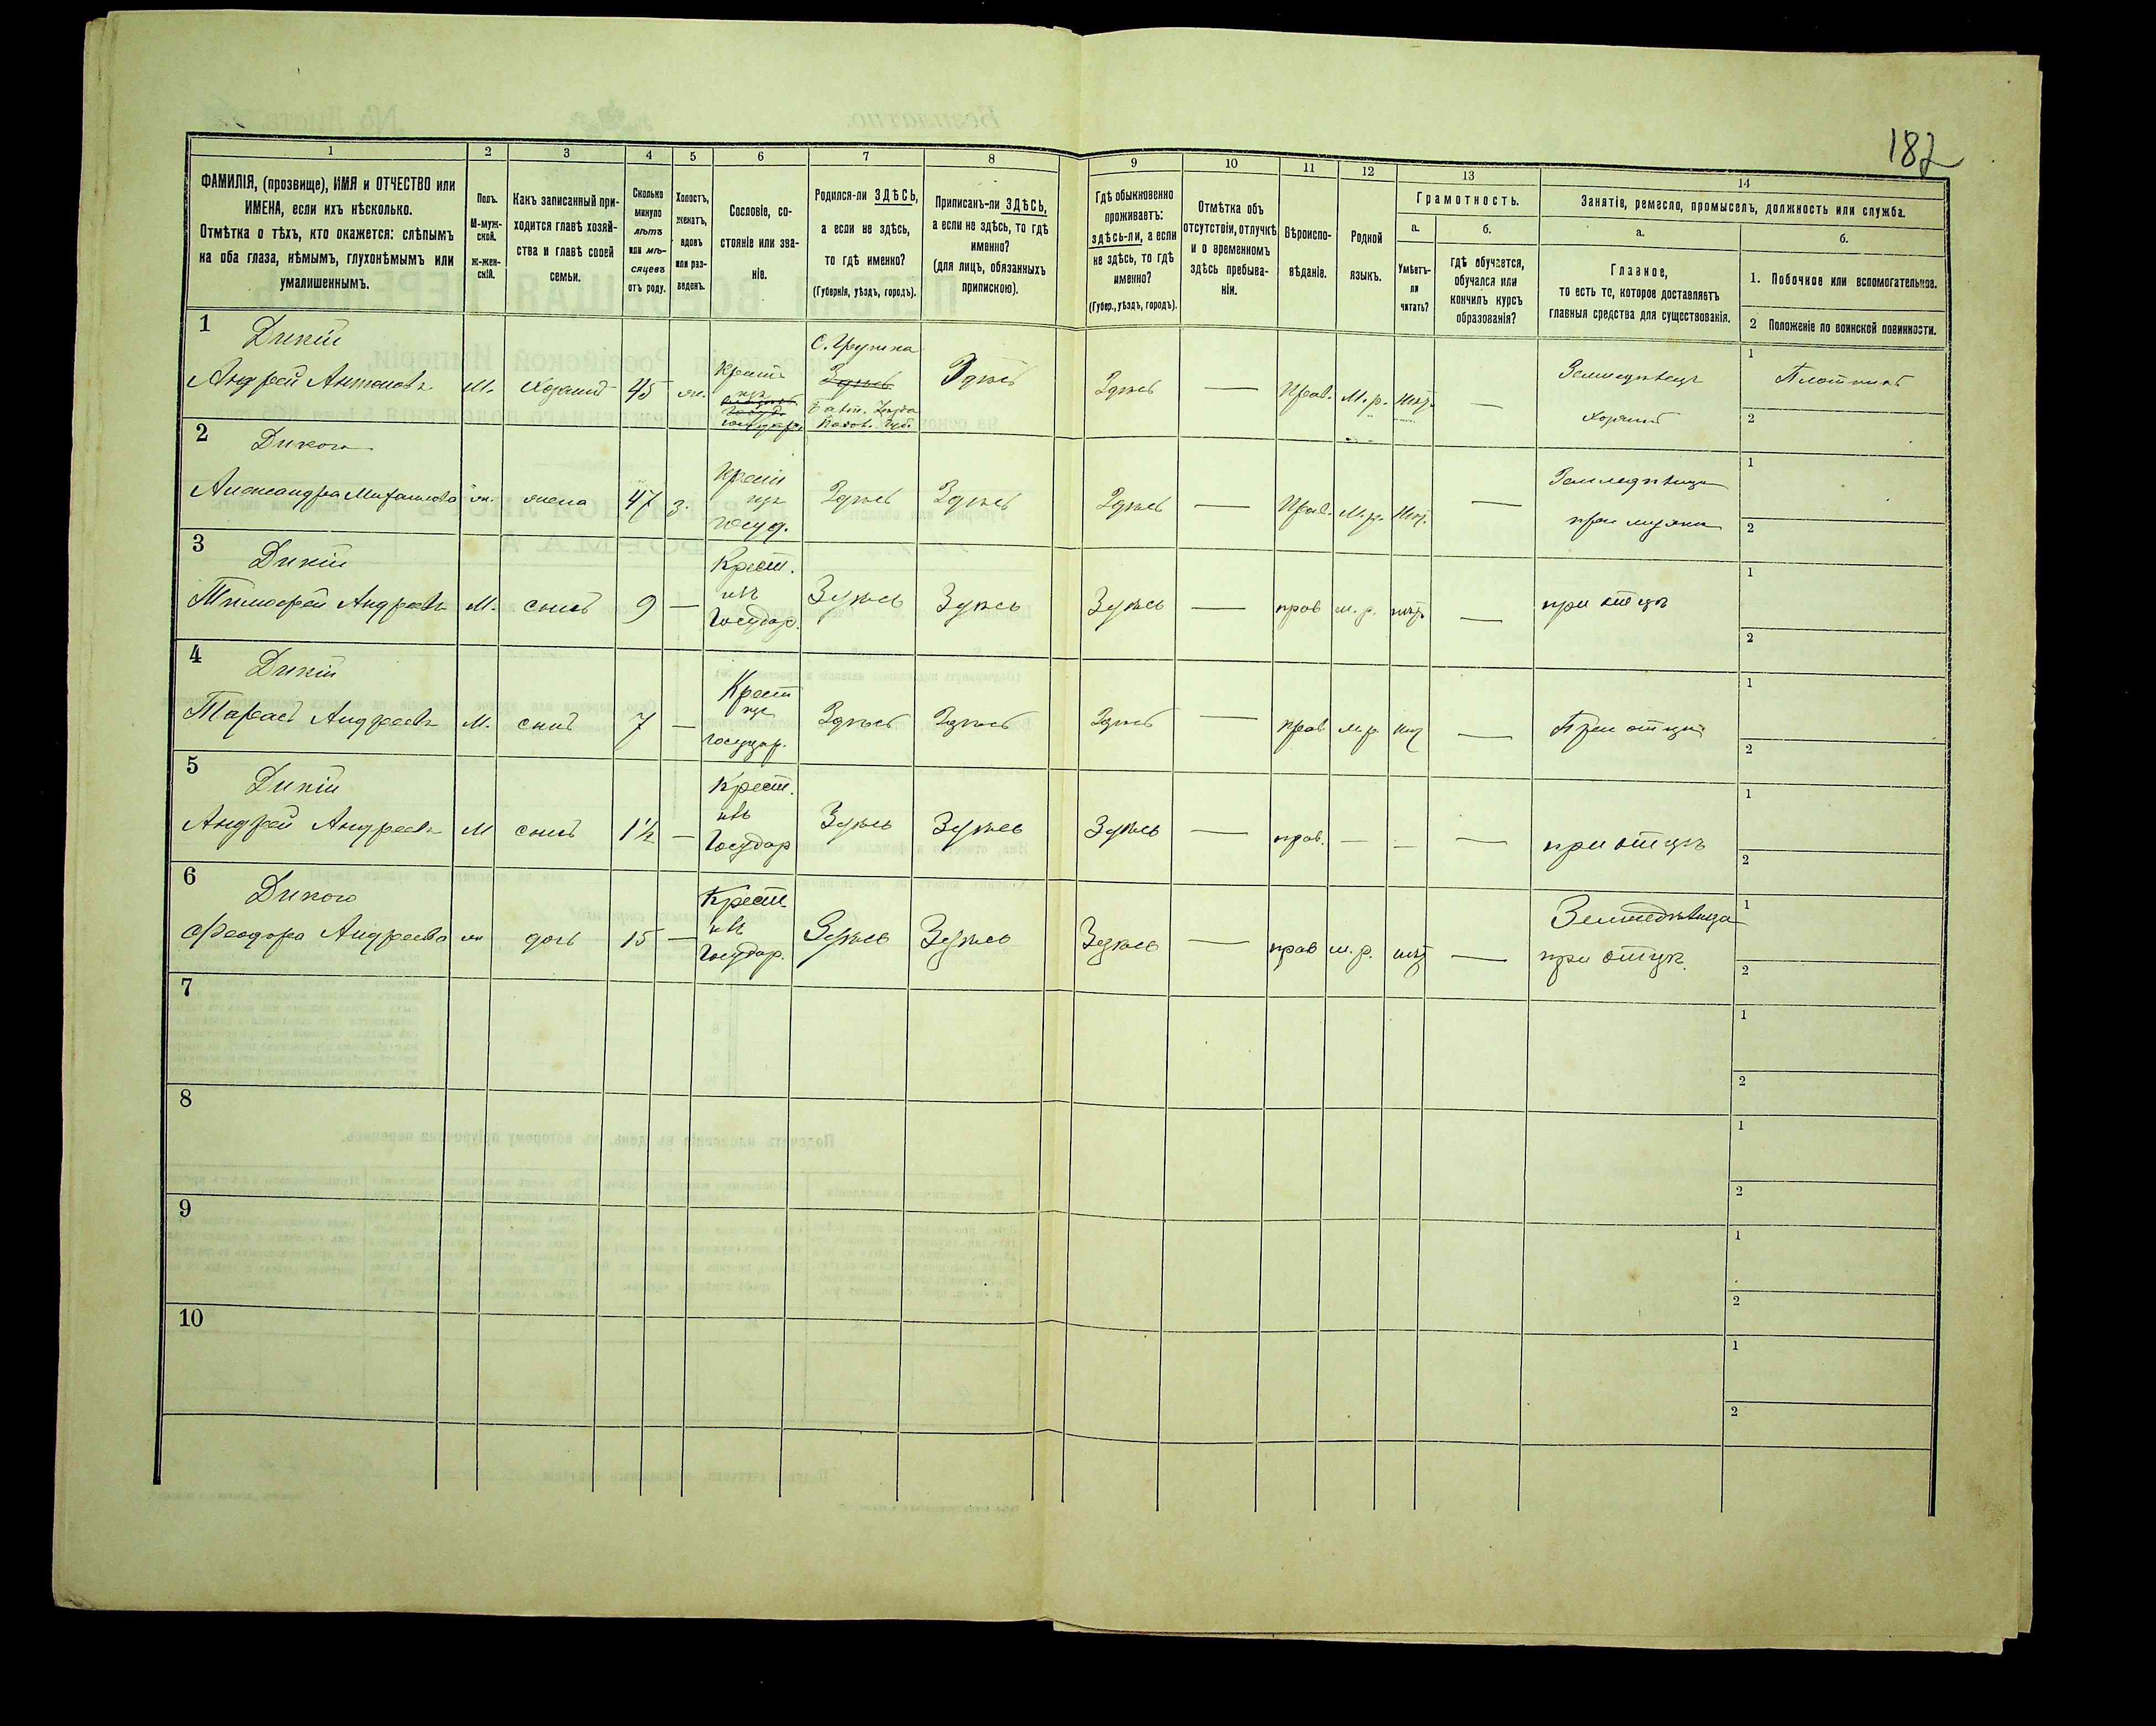 182
1 2 3 4 5 6 7 8 9 10 11 12 13 14
ФАМИЛІЯ, (прозвище), ИМЯ и ОТЧЕСТВО или
ИМЕНА, если ихъ нѣсколько.
Отмѣтка о тѣхъ, кто окажется: слѣпымъ
на оба глаза, нѣмымъ, глухонѣмымъ или
умалишеннымъ.
Полъ.
М-муж-
ской.
ж-жен-
скій.
Какъ записанный при-
ходится главѣ хозяй-
ства и главѣ своей
семьи.
Сколько
минуло
лѣтъ
или мѣ-
сяцевъ
отъ роду.
Холостъ,
женатъ,
вдовъ
или раз-
веденъ.
Сословіе, со-
стояніе или зва-
ніе.
Родился-ли ЗДѢСЬ,
а если не здѣсь,
то гдѣ именно?
(Губернія, уѣздъ, городъ).
Приписанъ-ли ЗДѢСЬ,
а если не здѣсь, то гдѣ
именно?
(для лицъ, обязанныхъ
припискою).
Гдѣ обыкновенно
проживаетъ:
здѣсь-ли, а если
не здѣсь, то гдѣ
именно?
(Губер., уѣздъ, городъ).
Отмѣтка объ
отсутствіи, отлучкѣ
и о временномъ
здѣсь пребыва-
ніи.
Вѣроиспо-
вѣданіе.
Родной
языкъ.
Грамотность.
а.
Умѣетъ-
ли
читать?
б.
гдѣ обучается,
обучался или
кончилъ курсъ
образованія?
Занятіе, ремесло, промыселъ, должность или служба.
а.
Главное,
то есть то, которое доставляетъ
главныя средства для существованія.
б.
1. Побочное или вспомогательное.
2 Положеніе по воинской повинности.
1
Дикій
Андрей Антоновъ М. Хозяинъ 45 ж.
Крест.
изъ
С.
Здѣсь
Здѣсь Здѣсь — Прав. М.р. Нѣтъ —
Земледѣлецъ
Хозяинъ
1 Плотникъ
2
2
Дикого
Александра Михаилова ж. жена 47 з.
Крест
изъ
госуд.
Здѣсь Здѣсь Здѣсь — Прав. М.р. Нѣт. —
Земледѣлица
при мужѣ
1
2
3
Дикій
Тимофей Андреевъ М. сынъ 9 —
Крест.
изъ
Государ.
Здѣсь Здѣсь Здѣсь — прав м.р. нѣтъ —
при отцѣ
1
2
4
Дикій
Тарасъ Андреевъ М. сынъ 7 —
Крест
изъ
государ.
Здѣсь Здѣсь Здѣсь — прав м.р нѣт —
При отцѣ
1
2
5
Дикій
Андрей Андреевъ М сынъ 1½ —
Крест.
изъ
Государ
Здѣсь Здѣсь Здѣсь — прав. — — —
при отцѣ
1
2
6
Дикого
Феодора Андреева ж дочь 15 —
Крест
изъ
Государ.
Здѣсь Здѣсь Здѣсь — прав м.р. нѣт —
Земледѣлица
при отцѣ.
1
2
7
1
2
8
1
2
9
1
2
10
1
2